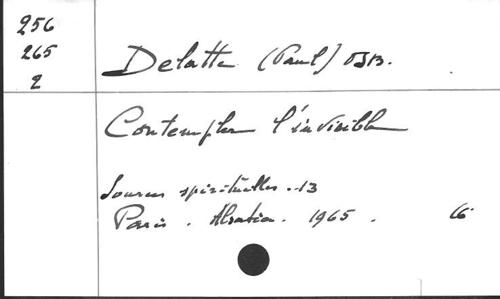 256
265
2
Delatte (Paul) OSB.
Contempler l'invisible
Sources spirituelles. 13
Paris. Alsatia. 1965.